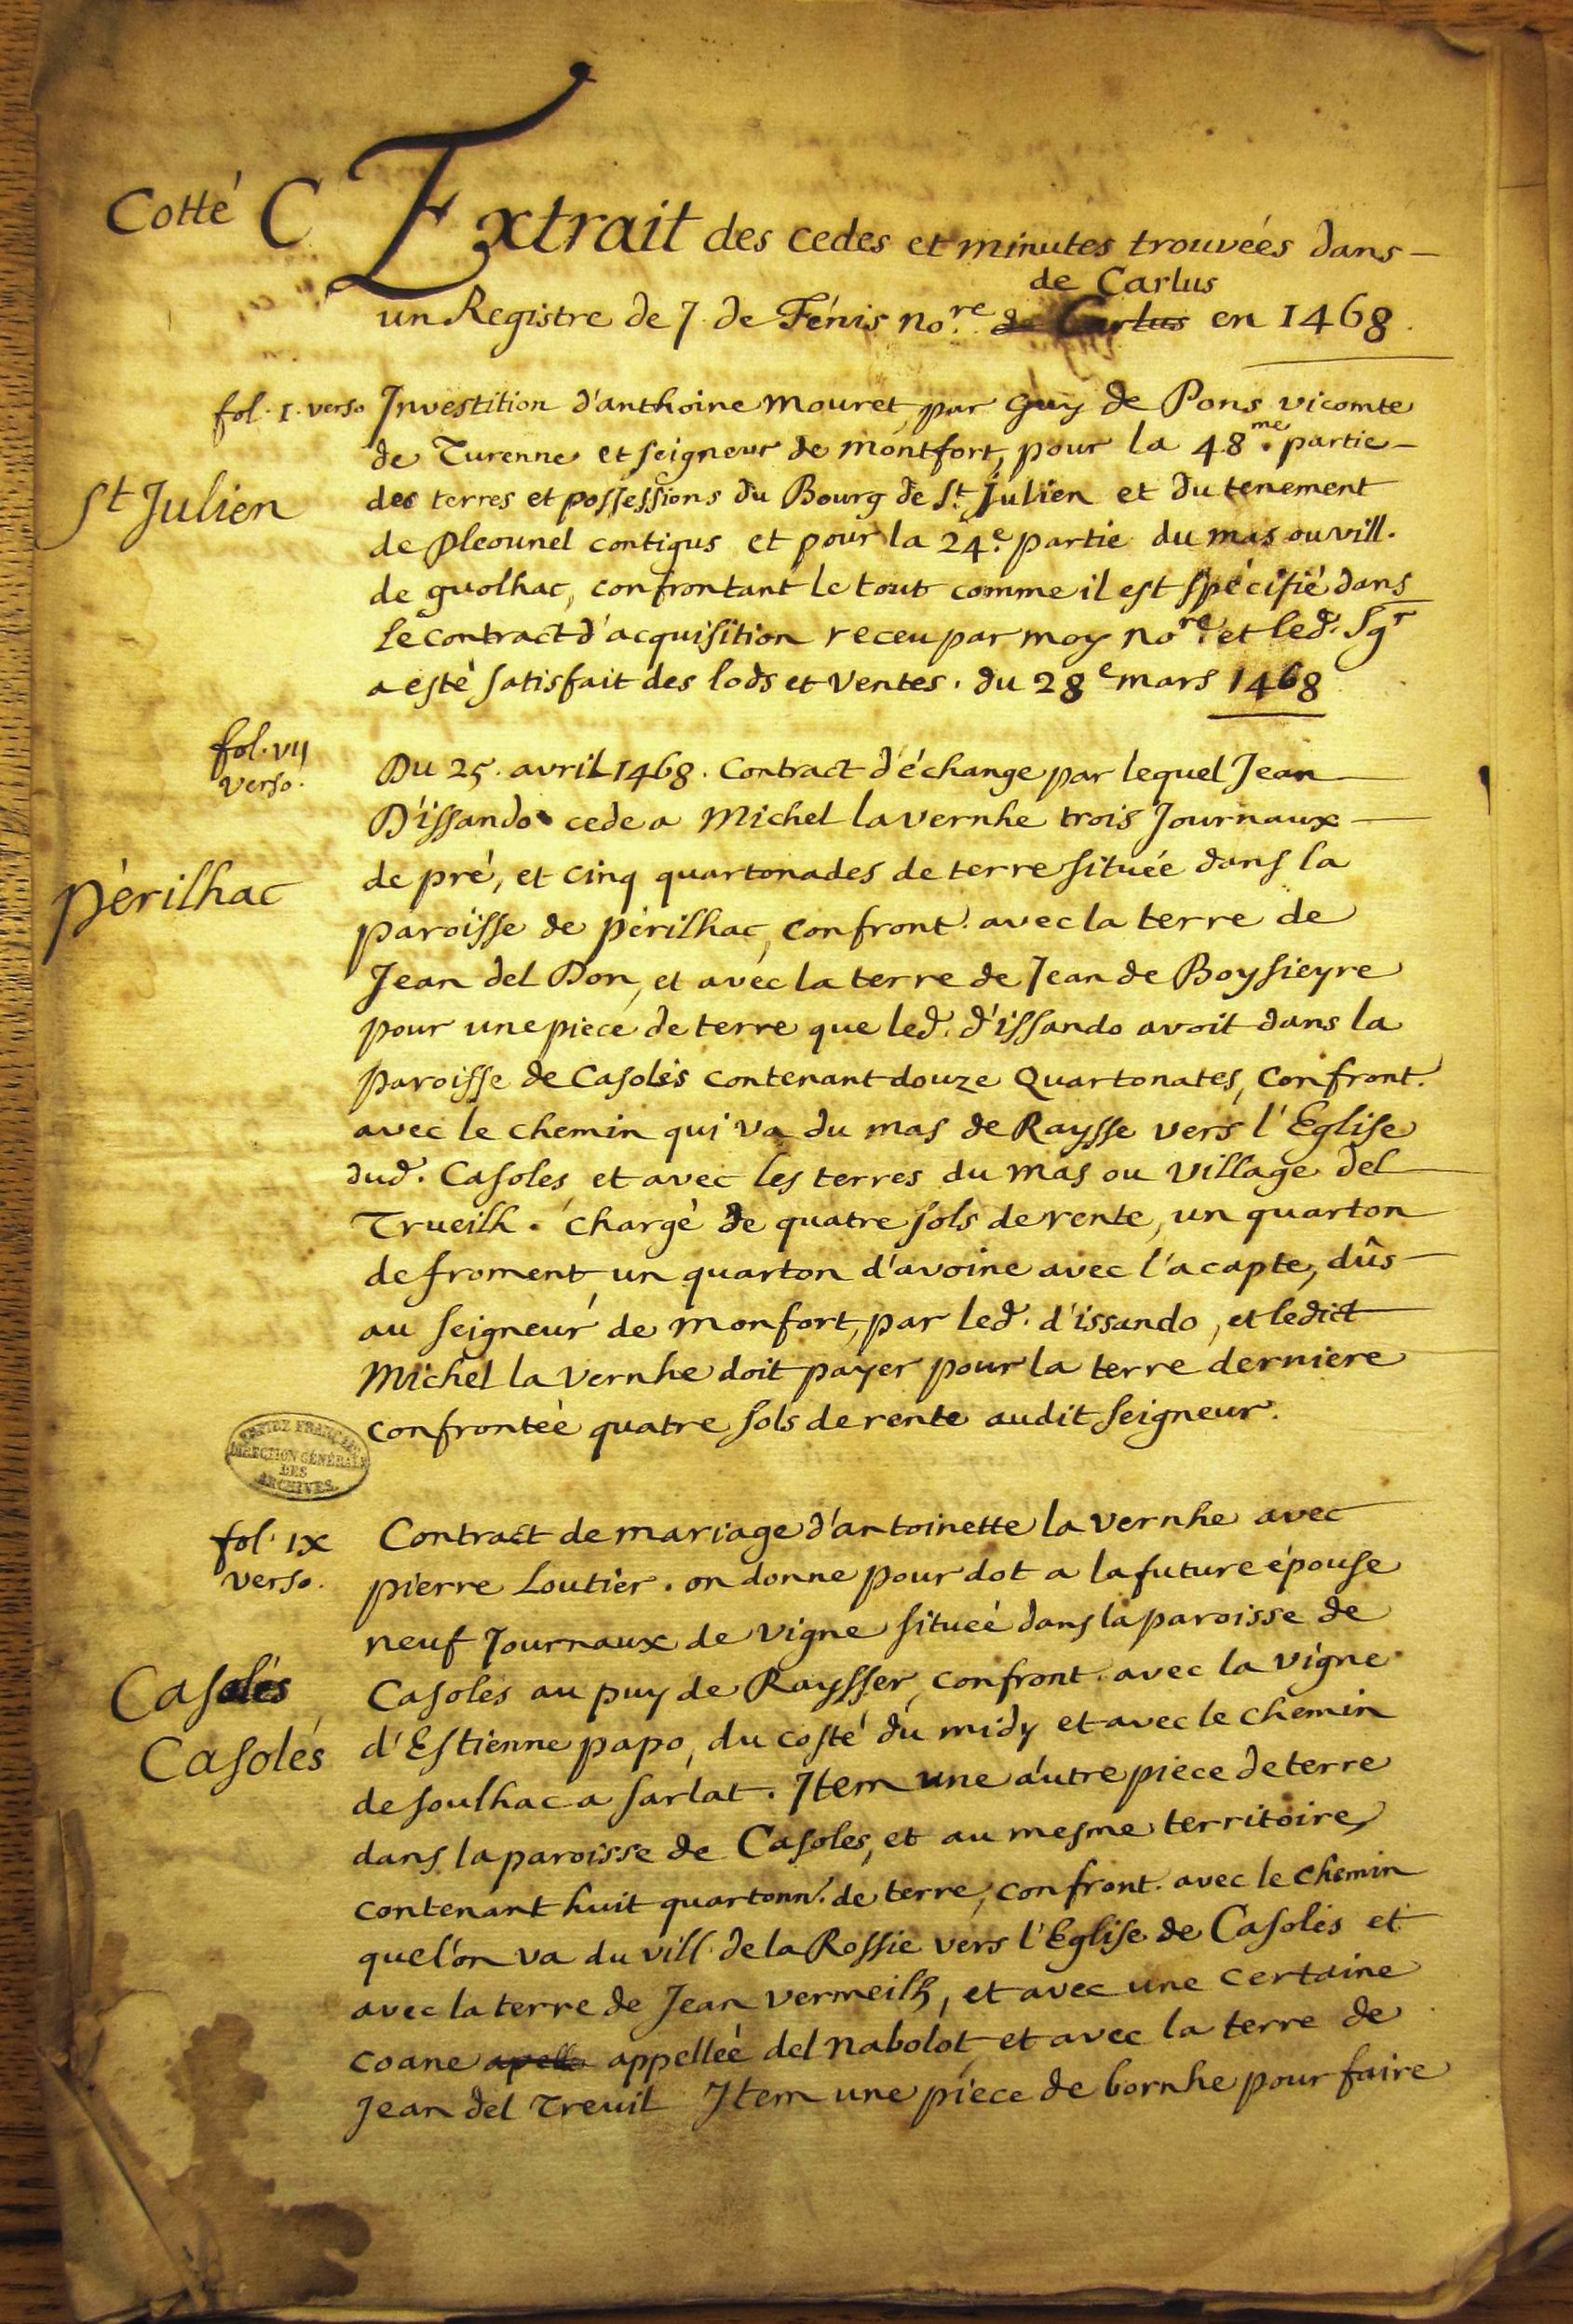 Cotté C Extrait des cedes et minutes trouvées dans
de Carlus
un Registre de J. de Fénis no.re de Carlus en 1468.
fol. 1. verso Investition d'anthoine mouret, par Guy de Pons vicomte
de Turenne et seigneur de montfort, pour la 48.me partie
St Julien
des terres et possessions du Bourg de St. Julien et du tenement
de Pleounel contigus et pour la 24.e partie du mas ou vill.
de guolhac, confrontant le tout comme il est spécifié dans
le contract d'acquisition receu par moy no.re et led. Sgr
a esté satisfait des lods et ventes. du 28e mars 1468
fol. VII
verso.
Du 25. avril 1468. Contract d'échange par lequel Jean
D'issando cede a Michel la vernhe trois Journaux
Périlhac
de pré, et cinq quartonades de terre située dans la
paroisse de périlhac, confront. avec la terre de
Jean del Don, et avec la terre de Jean de Boysieyre
pour une piece de terre que led. d'issando avoit dans la
paroisse de Casolés contenant douze Quartonates, Confront.
avec le chemin qui va du mas de Raysse vers l'Eglise
dud. Casoles et avec les terres du mas ou village del
Trueilh. chargé de quatre sols de rente, un quarton
de froment un quarton d'avoine avec l'acapte, dûs
au seigneur de monfort, par led. d'issando, et ledict
Michel la vernhe doit payer pour la terre derniere
confrontée quatre sols de rente audit seigneur.
DIRECTION GÉNÉRALE
DES
ARCHIVES
fol. IX
verso.
Contract de mariage d'antoinette la vernhe avec
pierre Loutier. on donne pour dot a la future épouse
neuf Journaux de vigne située dans la paroisse de
Casolés
Casoles au puy de Raysser, confront. avec la vigne
Casolés
d'Estienne papo, du costé du midy et avec le chemin
de soulhac a sarlat. Item une autre piece de terre
dans la paroisse de Casoles, et au mesme territoire,
contenant huit quartonn. de terre, confront. avec le chemin
que l'on va du vill. de la Rossie vers l'Eglise de Casolés et
avec la terre de Jean vermeilh, et avec une certaine
coane apelle appellée del nabolot, et avec la terre de
Jean del Treuil Item une piece de bornhe pour faire